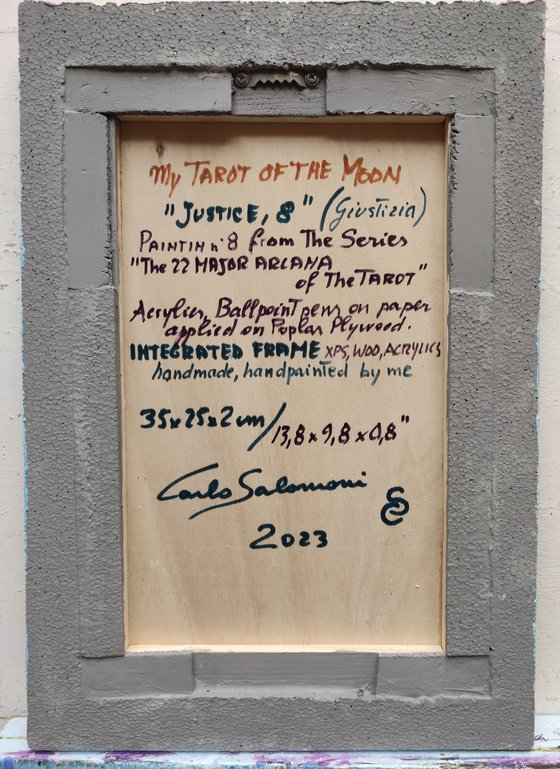 My TAROT OF THE MOON
"JUSTICE, 8" (Giustizia)
PAINTIN n° 8 from The Series
"The 22 MAJOR ARCANA
of The TAROT"
Acrylics, Ballpoint pens on paper
applied on Poplar Plywood.
INTEGRATED FRAME XPS, WOD, ACRYLICS
handmade, handpainted by me
35x25x2 cm/13,8x9,8x0,8"
Carlo Salomoni
2023